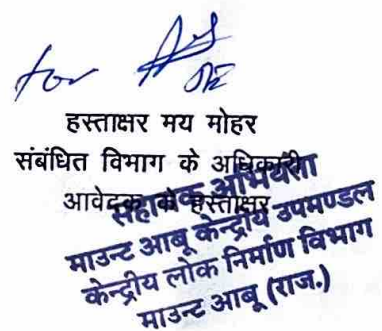 for
हस्ताक्षर मय मोहर
संबंधित विभाग के अधिकारी
आवेदक के हस्ताक्षर
सहायक अभियंता
माउन्ट आबू केन्द्रीय उपमण्डल
केन्द्रीय लोक निर्माण विभाग
माउन्ट आबू (राज.)